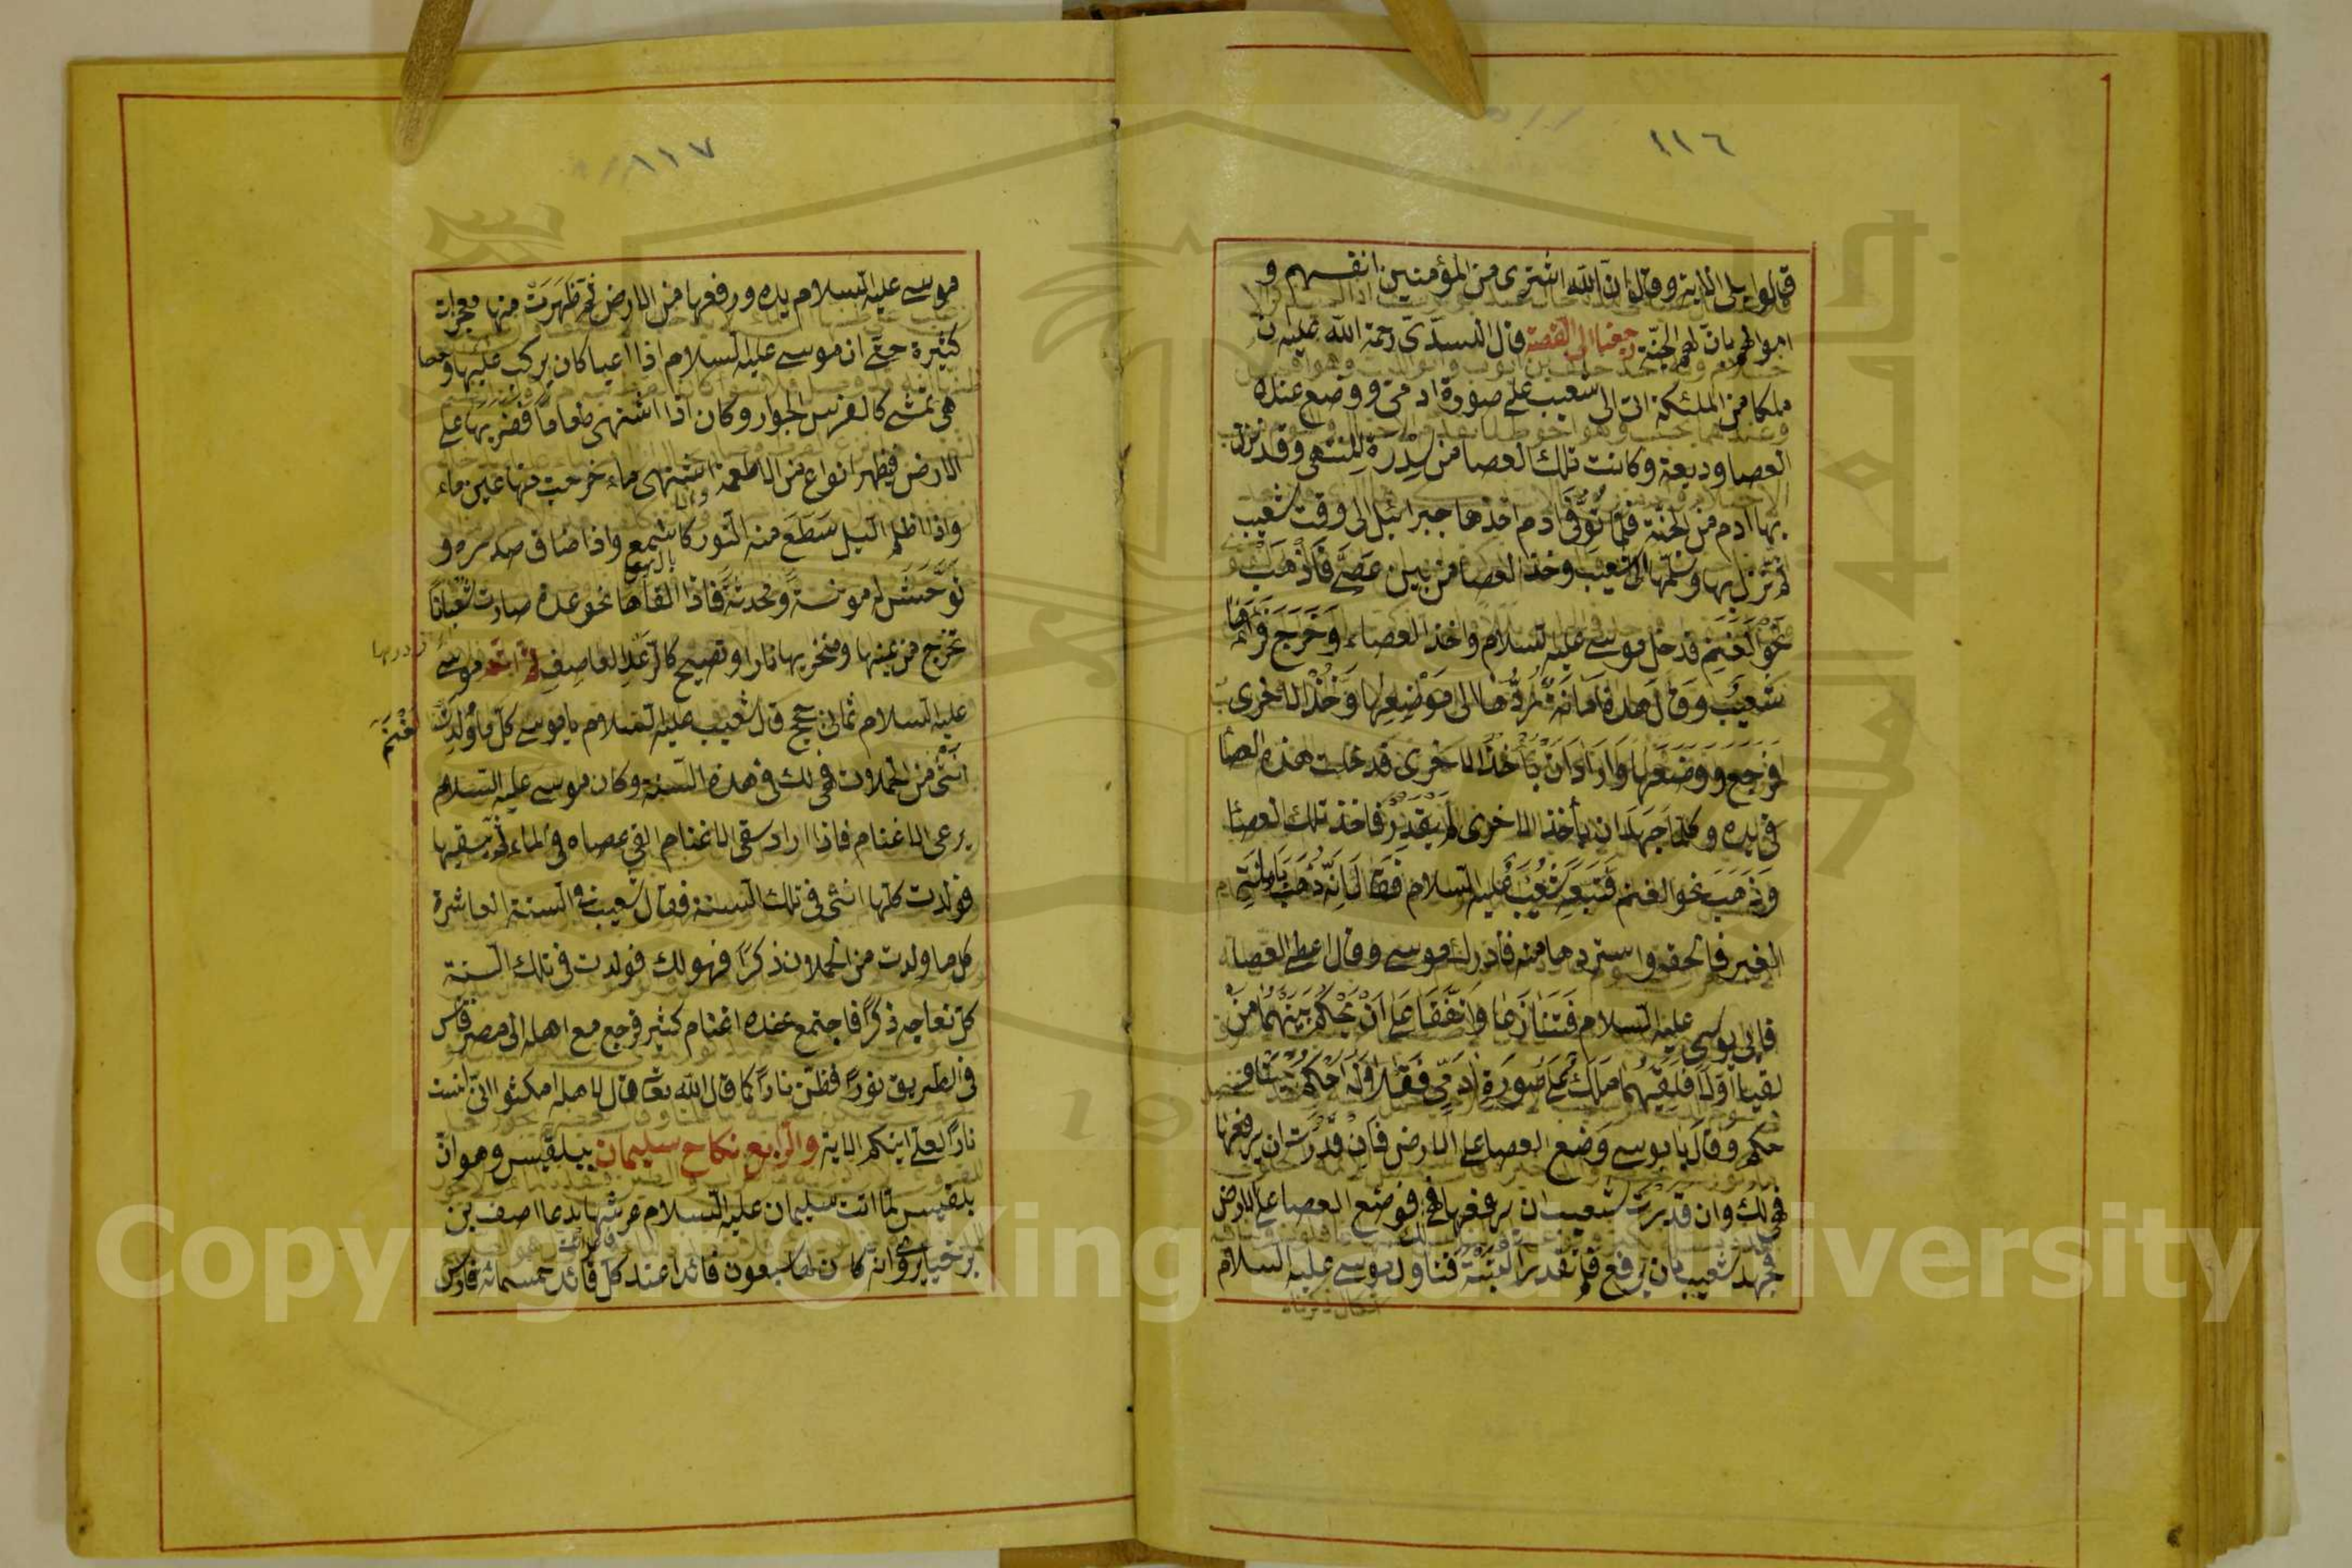 ١١٦
قالوا بلى الاية وقال ان الله اشترى من المؤمنين انفسهم و
اموالهم بان لهم الجنة رجعنا الى القصة قال السدى رحمة الله عليه ان
ملكا من الملئكة اتى الى شعيب على صورة ادمى ووضع عنده
العصا وديعة وكانت تلك العصا من سدرة المنتهى وقد نزل
بها ادم من الجنة فلما توفى ادم اخذها جبرائيل الى وقت شعيب
ثم نزل بها وسلمها الى شعيب وخذ العصا من بين عصى فاذهب
نحو الغنم فدخل موسى عليه السلام واخذ العصاء وخرج فراها
شعيب وقال هذه امانة فردها الى موضعها وخذ الاخرى
فرجع ووضعها واراد ان يأخذ الاخرى فدخلت هذه العصا
فى يده وكلما جهد ان يأخذ الاخرى لم يقدر فاخذ تلك العصا
وذهب نحو الغنم فتبعه شعيب عليه السلام فقال انه ذهب بامانتى
الغير فالحقه واستردها منه فادرك موسى وقال اعطى العصاء
فابى موسى عليه السلام فتنازعا واتفقا على ان يحكم بينهما من
لقيا اولا فلقيهما ملك على صورة ادمى فقالا له احكم بيننا
حكم وقال يا موسى وضع العصا على الارض فان قدرت ان ترفعها
فهى لك وان قدرت شعيب ان يرفعها فهى فوضع العصا على الارض
فجهد شعيب بان يرفع فلم تقدر البتة فتناول موسى عليه السلام
١١٧
موسى عليه السلام يده ورفعها من الارض ثم ظهرت منها معجزات
كثيرة حتى ان موسى عليه السلام اذا اعيا كان يركب عليها وحصا
هى تمشى كالفرس الجوار وكان اذا اشتهى طعاما فضربها على
الارض فيظهر انواع من الاطعمة واذا اشتهى ماء خرجت منها عين ماء
واذا اظلم الليل سطع منه النور كالشمع واذا ضاق صدره و
توحش له مونسة ومحدثة فاذا القاها نحو عدة صارت ثعبانا
تخرج من عينها ومنخريها نارا وتصيح كالرعد العاصف ثم اتم موسى
عليه السلام ثمان حجج قال شعيب عليه السلام يا موسى كل ما ولدت
الغنم
انثى من الحملات فهى لك فى هذه السنة وكان موسى عليه السلام
يرعى الاغنام فاذا اراد سقى الاغنام القى عصاه فى الماء ثم يسقيها
فولدت كلها انثى فى تلك السنة فقال شعيب فى السنة العاشرة
كل ما ولدت من الحملان ذكرا فهو لك فولدت فى تلك السنة
كل نعاجه ذكرا فاجتمع عنده اغنام كثير فرجع مع اهله الى مصر
فى الطريق نورا فظن نارا كما قال الله تعالى قال لاهله امكثوا انى انست
نارا لعلى اتيكم الاية والرابع نكاح سليمان ببلقيس وهو ان
بلقيس لما اتت سليمان عليه السلام عرشها بدعا اصف بن
برخيا يروى انه كان لها سبعون قائدا عند كل قائد خمسمائة فارس
Copyright © King Saud University